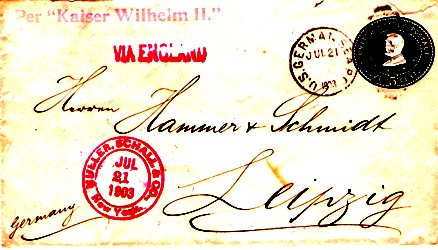 Per "Kaiser Wilhelm II."
VIA ENGLAND
U.S. GERMAN
JUL 21
1903
Herren
Hammer & Schmidt
MULLER, SCHALL & CO.
JUL
21
1903
New York.
Leipzig
Germany